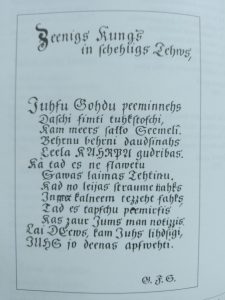 Zeenigs Kungs
in schehligs Tehws,
Juhsu Gohdu peeminnehs
Daschi simti tuhkstoschi,
Kam meers salko Seemeli.
Behrnu behrni daudsinahs
Leela KAHRPU gudribas.
Kà tad es ne slawetu
Sawas laimas Tehtinu,
Kad no leijas straume nahks
In kalneem tezzeht sahks
Tad es tapschu peemirsis
Kas zaur Jums man notizis.
Lai DEews, kam Juhs lihdsigi,
JUHS jo deenas apswehti.
G. F. S.